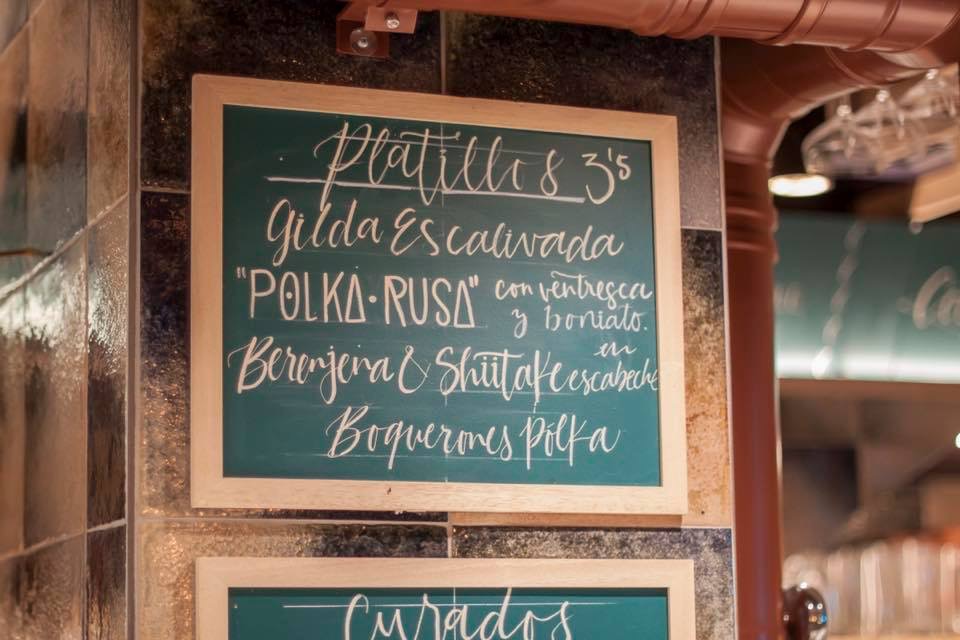 Platillos 3'5
Gilda Escalivada
"POLKA·RUSA" con ventresca
y boniato.
Berenjena & Shiitake en escabeche
Boquerones pólka
Curados